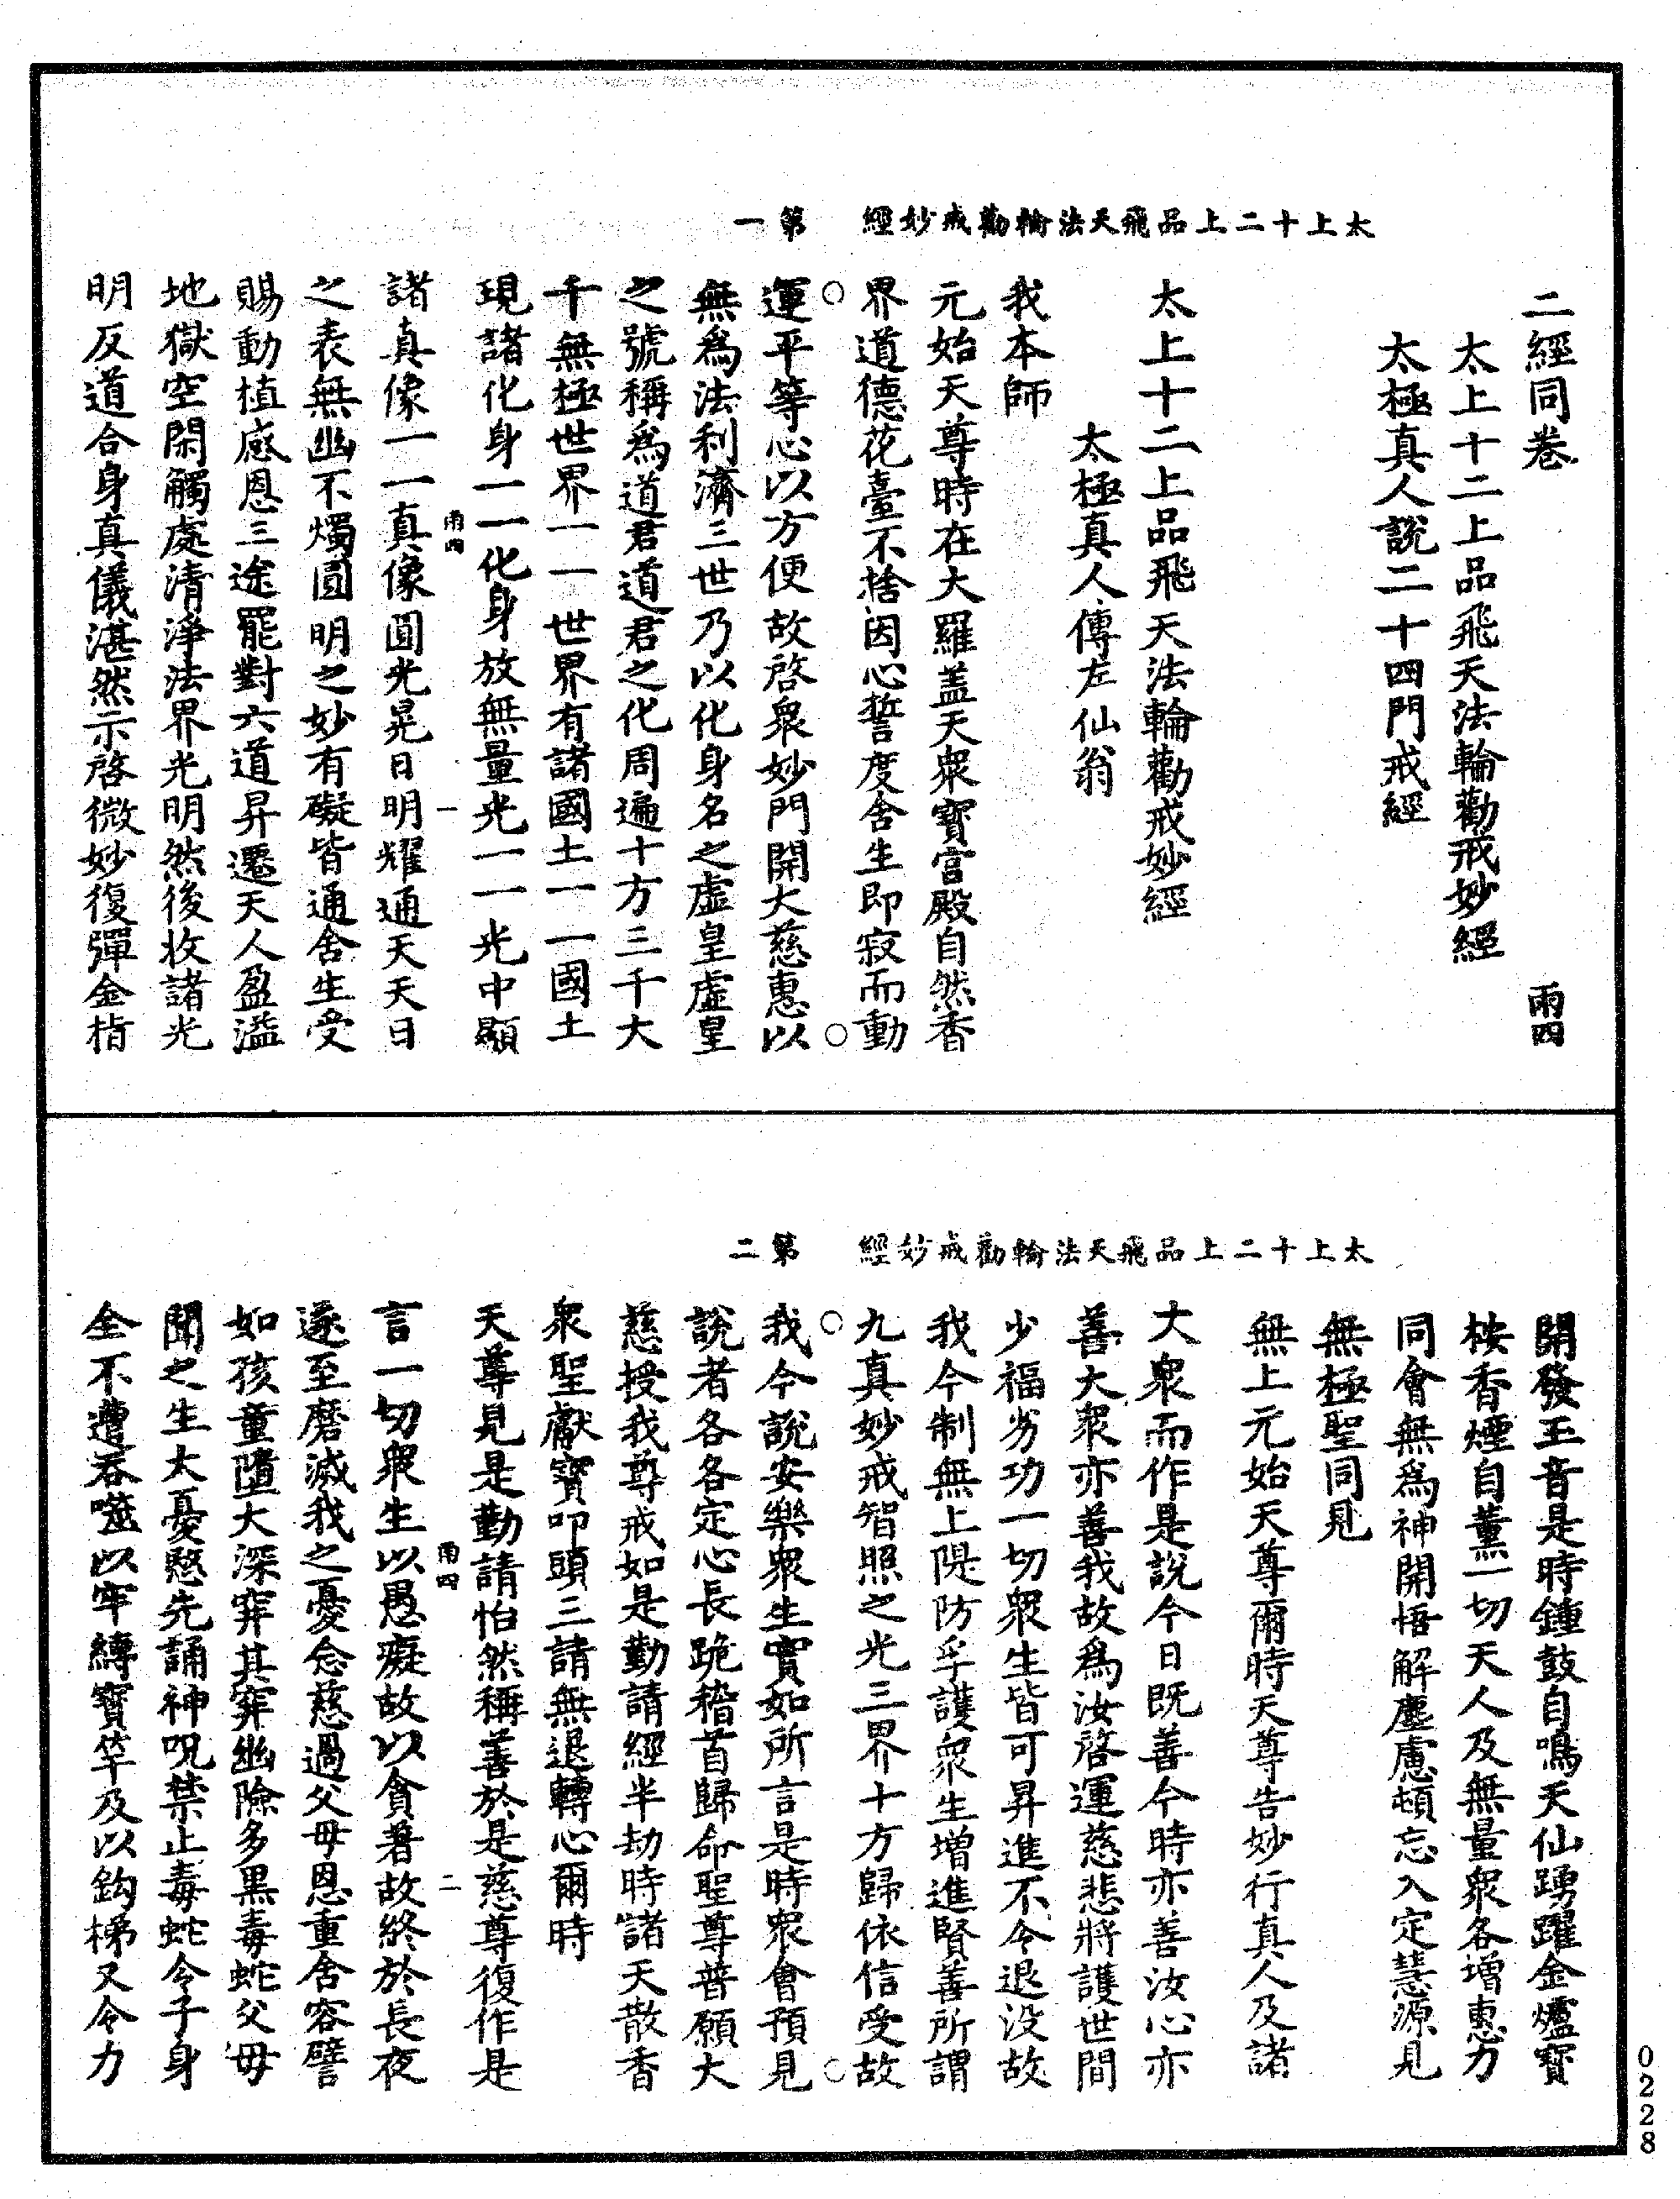 太上十二上品飛天法輪勸戒妙經　第一
二經同卷　雨四
太上十二上品飛天法輪勸戒妙經
太極真人說二十四門戒經
太上十二上品飛天法輪勸戒妙經
太極真人傳左仙翁
我本師
元始天尊時在大羅盖天衆寶宫殿自然香
界道德花臺不捨因心誓度含生即寂而動
○　○
運平等心以方便故啓衆妙門開大慈惠以
無爲法利濟三世乃以化身名之虛皇虛皇
之號稱爲道君道君之化周遍十方三千大
千無極世界一一世界有諸國土一一國土
現諸化身一一化身放無量光一一光中顯
雨四　一
諸真像一一真像圓光晃日明耀通天天日
之表無幽不燭圓明之妙有礙皆通含生受
賜動植感恩三途罷對六道昇遷天人盈溢
地獄空閑觸處清淨法界光明然後收諸光
明反道合身真儀湛然示啓微妙復彈金指
太上十二上品飛天法輪勸戒妙經　第二
開發玉音是時鍾鼓自鳴天仙踴躍金爐寶
桉香煙自薰一切天人及無量衆各增惠力
同會無爲神開悟解塵慮頓忘入定慧源見
無極聖同見
無上元始天尊爾時天尊告妙行真人及諸
大衆而作是說今日既善今時亦善汝心亦
善大衆亦善我故爲汝啓運慈悲將護世間
少福劣功一切衆生皆可昇進不令退没故
我今制無上隄防孚護衆生增進賢善所謂
九真妙戒智照之光三界十方歸依信受故
○　○
我今說安樂衆生實如所言是時衆會預見
說者各各定心長跪稽首歸命聖尊普願大
慈授我尊戒如是勤請經半劫時諸天散香
衆聖獻寶叩頭三請無退轉心爾時
天尊見是勤請怡然稱善於是慈尊復作是
雨四　二
言一切衆生以愚癡故以貪著故終於長夜
遂至磨滅我之憂念慈過父母恩重含容譬
如孩童墮大深穽其穽幽險多黒毒蛇父母
聞之生大憂愍先誦神呪禁止毒蛇令子身
全不遭吞噬以牢縳寶竿及以鈎梯又令力
0228